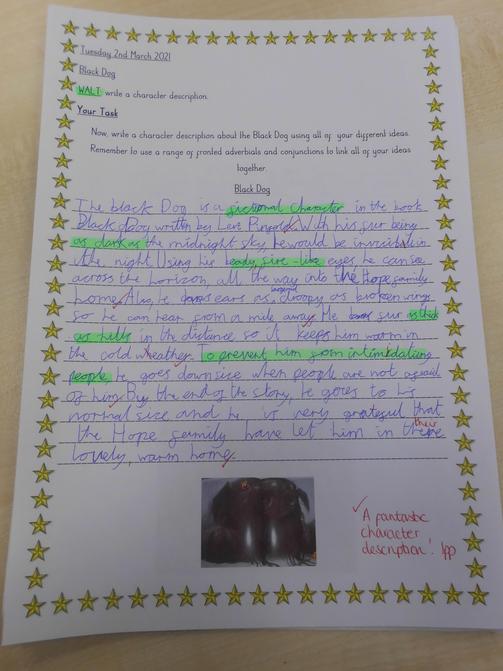 Tuesday 2nd March 2021
Black Dog
WALT write a character description.
Your Task
Now, write a character description about the Black Dog using all of your different ideas.
Remember to use a range of fronted adverbials and conjunctions to link all of your ideas
together.
Black Dog
The black Dog is a fictional character in the book
Black dog written by Levi Pinfold. With his fur being
as dark as the midnight sky, he would be invisible in
the night. Using his beady, fire-like eyes, he can see
across the horizon, all the way into the Hope family
home. Also, he has ears as droopy as broken wings
so he can hear from a mile away. He has fur as thick
as hills in the distance so it keeps him warm in
the cold wheather. To prevent him from intimidating
people, he goes down size when people are not afraid
of him. By the end of the story, he goes to his
normal size and he is very grateful that
the Hope family have let him in there their
lovely, warm home.
A fantastic
character
description! 1pp